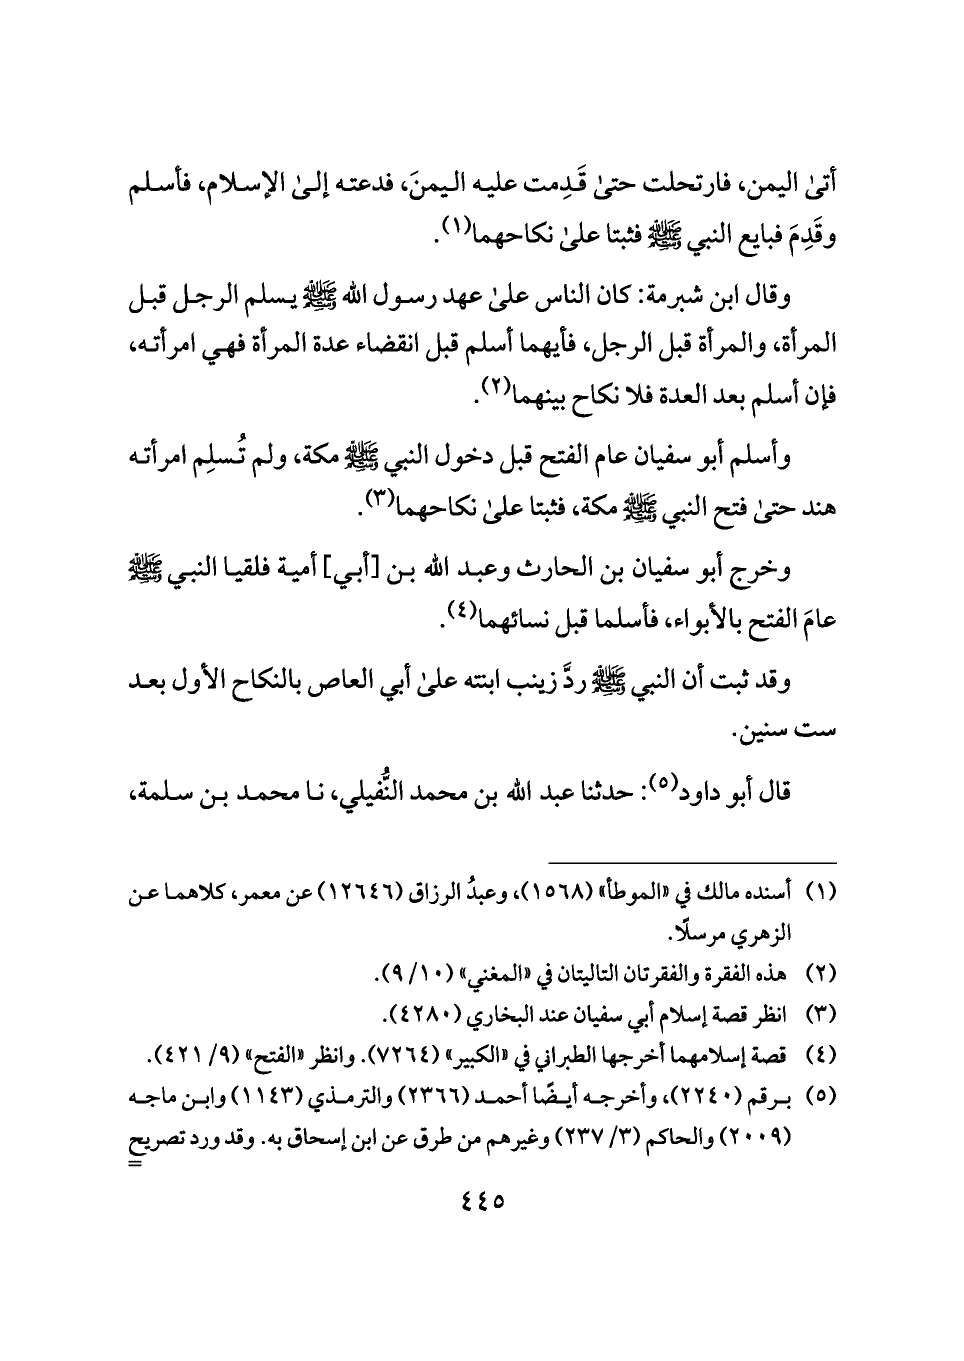 أتىٰ اليمن، فارتحلت حتىٰ قَدِمت عليه اليمنَ، فدعته إلىٰ الإسلام، فأسلم
وقَدِمَ فبايع النبي ﷺ فثبتا علىٰ نكاحهما(١).
وقال ابن شبرمة: كان الناس علىٰ عهد رسول الله ﷺ يسلم الرجل قبل
المرأة، والمرأة قبل الرجل، فأيهما أسلم قبل انقضاء عدة المرأة فهي امرأته،
فإن أسلم بعد العدة فلا نكاح بينهما(٢).
وأسلم أبو سفيان عام الفتح قبل دخول النبي ﷺ مكة، ولم تُسلِم امرأته
هند حتىٰ فتح النبي ﷺ مكة، فثبتا علىٰ نكاحهما(٣).
وخرج أبو سفيان بن الحارث وعبد الله بن [أبي] أمية فلقيا النبي ﷺ
عامَ الفتح بالأبواء، فأسلما قبل نسائهما(٤).
وقد ثبت أن النبي ﷺ ردَّ زينب ابنته علىٰ أبي العاص بالنكاح الأول بعد
ست سنين.
قال أبو داود(٥): حدثنا عبد الله بن محمد النُّفيلي، نا محمد بن سلمة،
(١) أسنده مالك في «الموطأ» (١٥٦٨)، وعبدُ الرزاق (١٢٦٤٦) عن معمر، كلاهما عن
الزهري مرسلًا.
(٢) هذه الفقرة والفقرتان التاليتان في «المغني» (١٠/ ٩).
(٣) انظر قصة إسلام أبي سفيان عند البخاري (٤٢٨٠).
(٤) قصة إسلامهما أخرجها الطبراني في «الكبير» (٧٢٦٤). وانظر «الفتح» (٩/ ٤٢١).
(٥) برقم (٢٢٤٠)، وأخرجه أيضًا أحمد (٢٣٦٦) والترمذي (١١٤٣) وابن ماجه
(٢٠٠٩) والحاكم (٣/ ٢٣٧) وغيرهم من طرق عن ابن إسحاق به. وقد ورد تصريح
=
٤٤٥